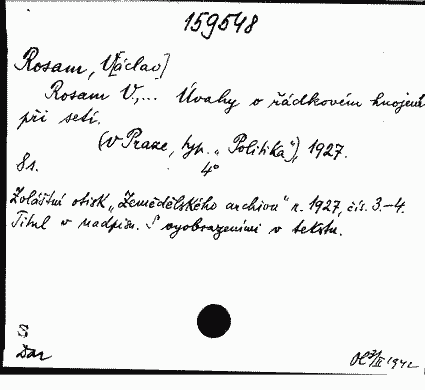 159548
Rosam, V[áclav]
Rosam V,... Úvahy o řádkovém hnojení
při setí.
(V Praze, typ. „Politika"), 1927.
8s. 4°
Zvláštní otisk „Zemědělského archivu" r. 1927, čís. 3.-4.
Titul v nadpisu. S vyobrazeními v textu.
S
Dar